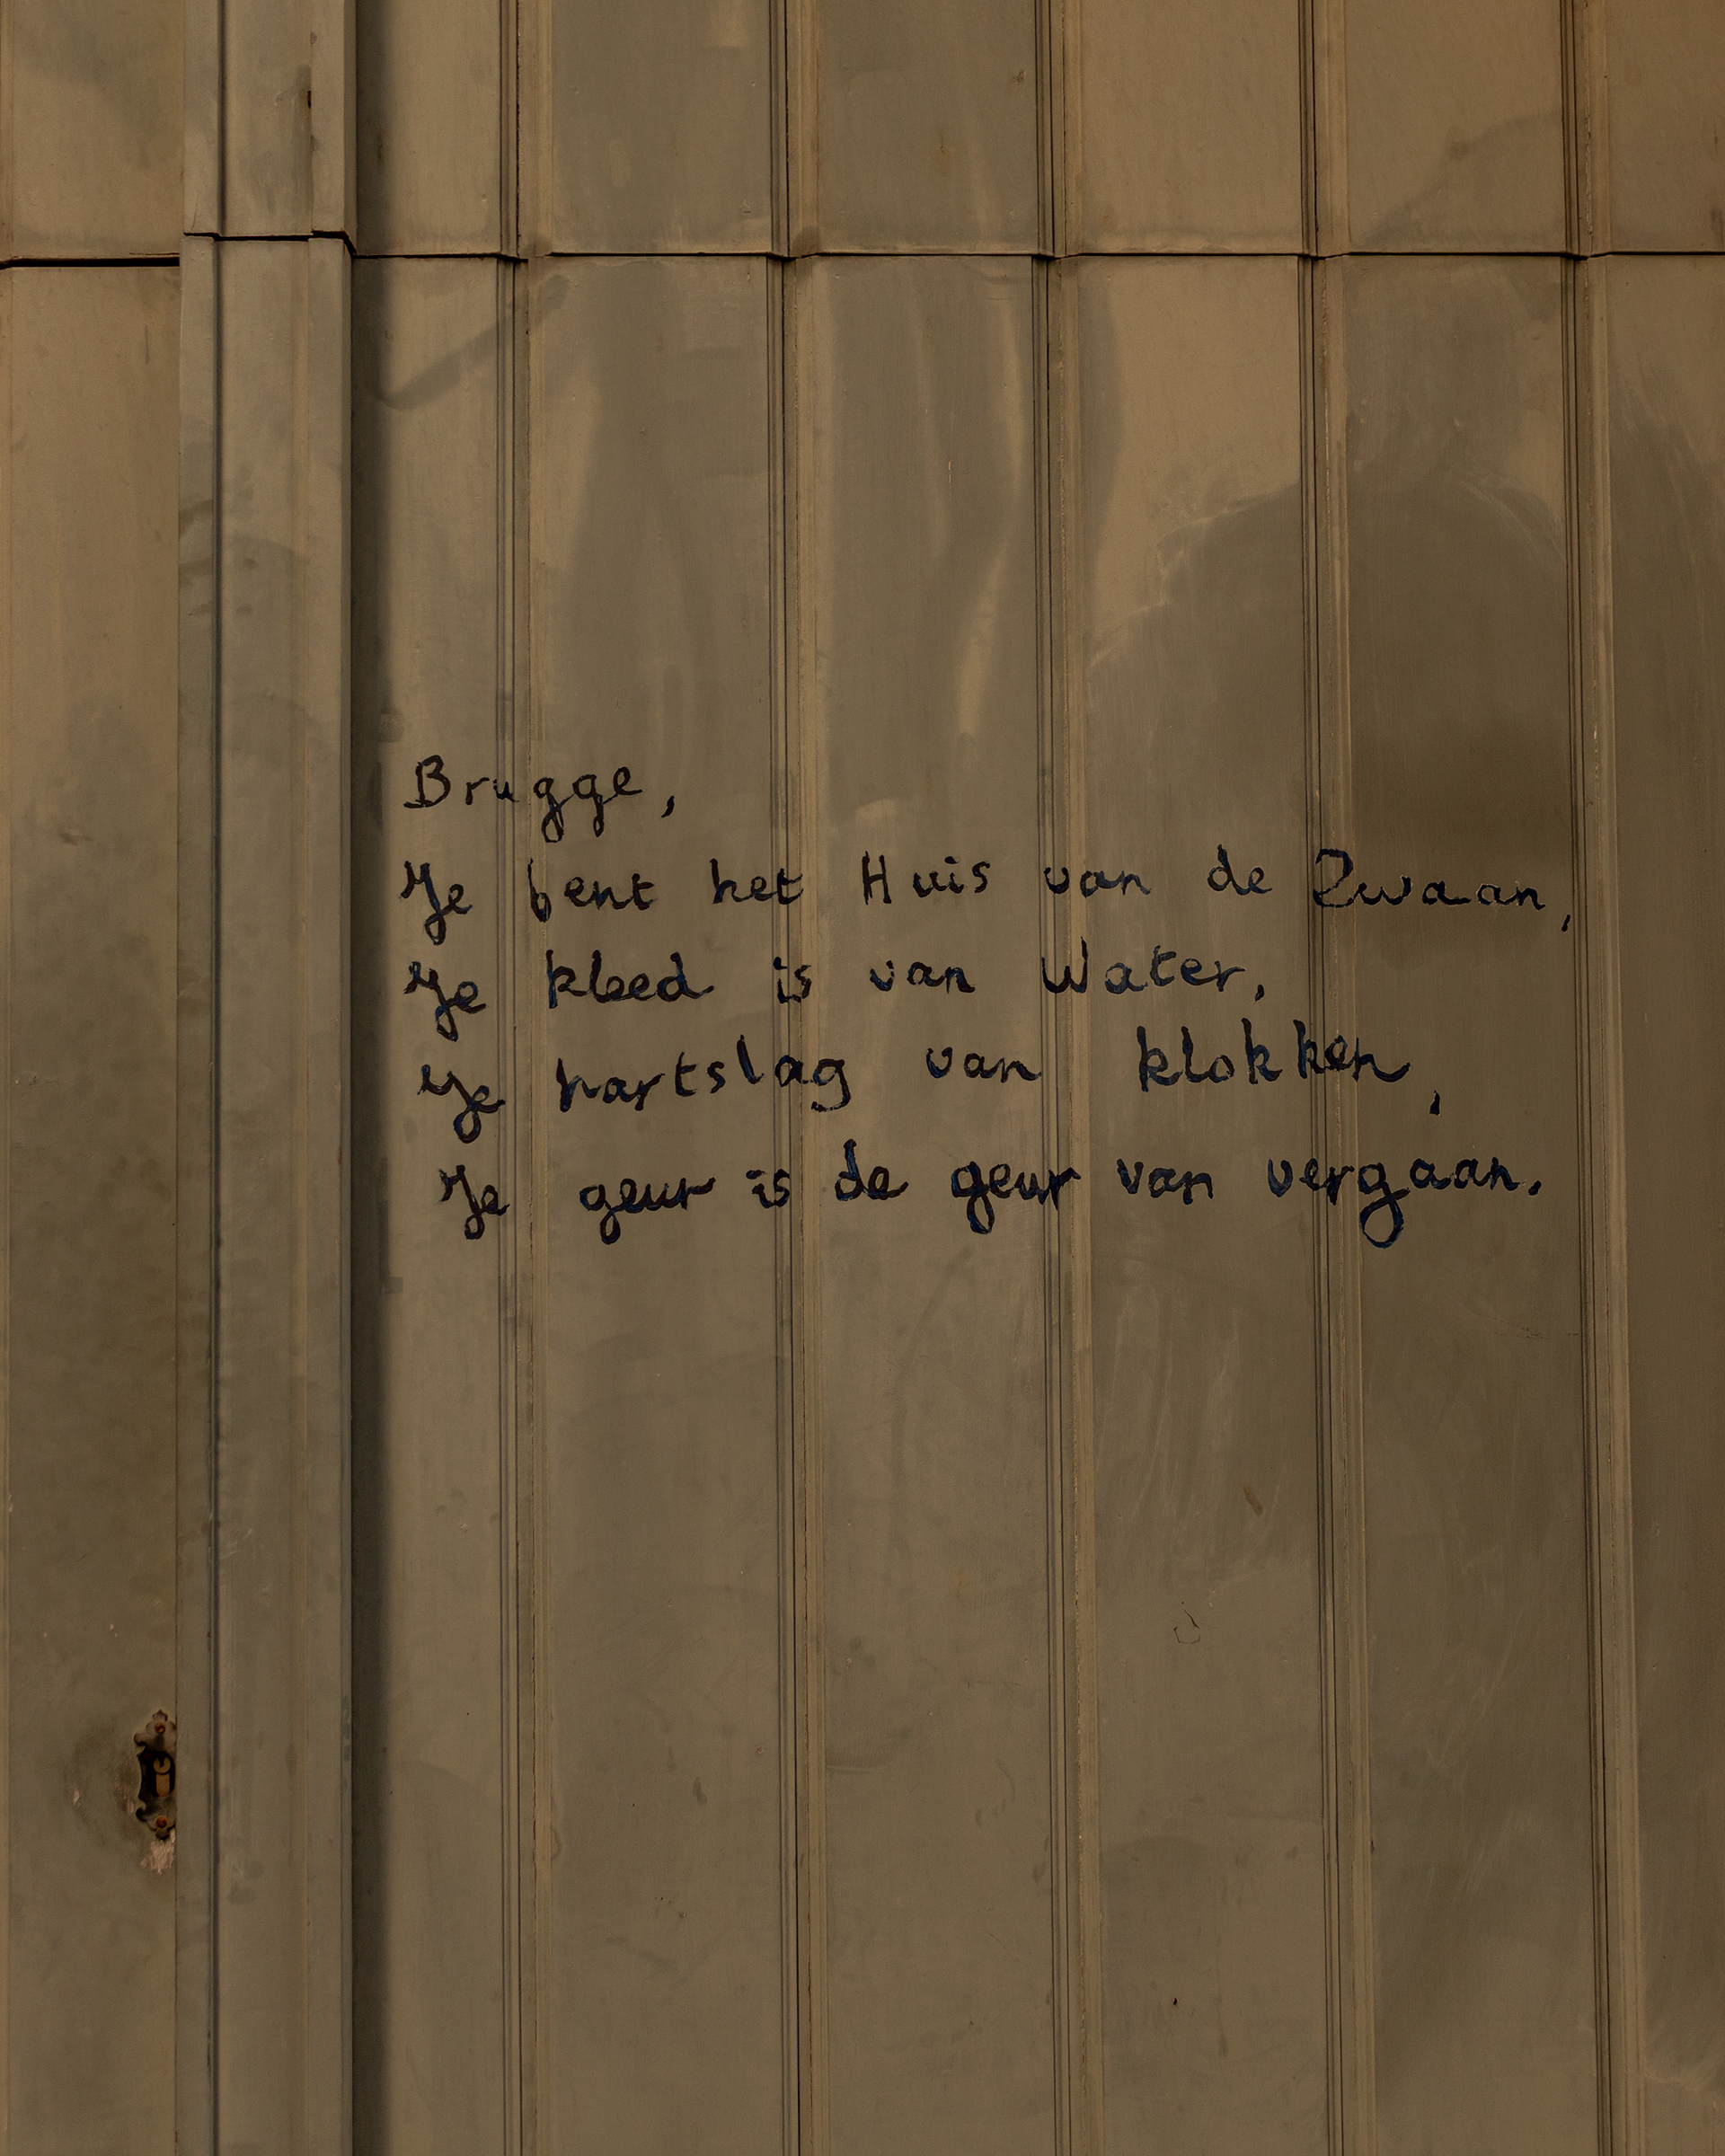 Brugge,
Je bent het Huis van de Zwaan,
Je kleed is van Water,
Je hartslag van klokken,
Je geur is de geur van vergaan.